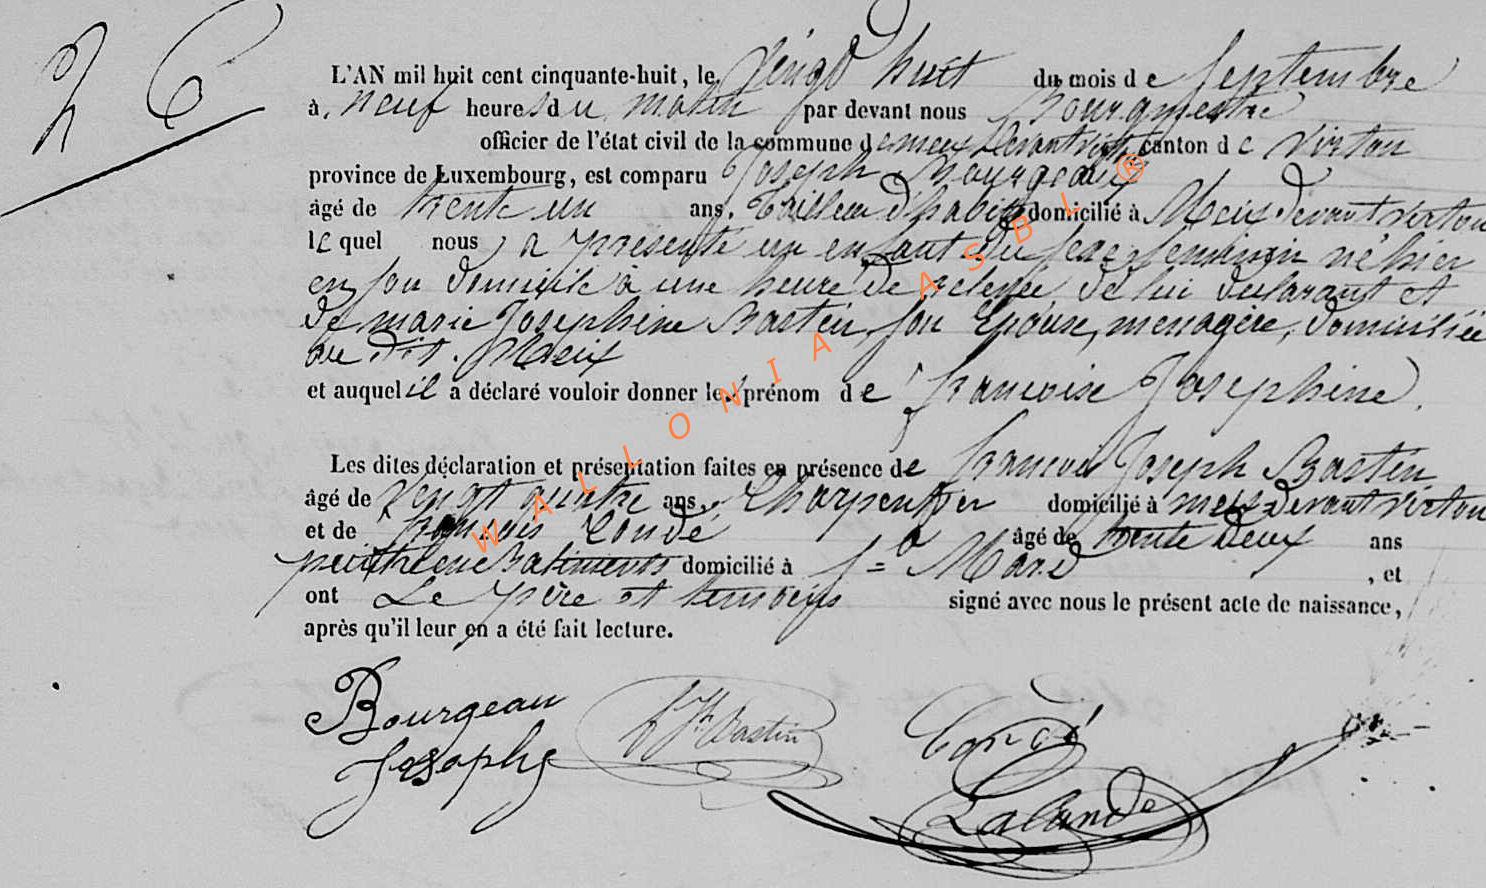 26
L'AN mil huit cent cinquante-huit, le vingt huit du mois de Septembre
à neuf heures du matin par devant nous Bourgmestre
officier de l'état civil de la commune de meix devant virton canton de Virton
province de Luxembourg, est comparu Joseph Bourgeau
âgé de trente un ans, tailleur d'habits domicilié à Meix devant virton
lequel nous a présenté un enfant du sexe féminin né hier
en son domicile à une heure de relevée de lui déclarant et
de marie Josephine Bastin, son Epouse, menagère, domiciliée
au dit Meix
et auquel il a déclaré vouloir donner les prénom de francoise Josephine.
Les dites déclaration et présentation faites en présence de francois Joseph Bastin
âgé de vingt quatre ans, Charpentier domicilié à meix devant virton
et de françois Condé âgé de trente deux ans
peintre en Batiments domicilié à St Mard , et
ont Le père et temoins signé avec nous le présent acte de naissance,
après qu'il leur en a été fait lecture.
Bourgeau
Josephe
f Jh Bastin
Condé
Lalande
WALLONIA ASBL ®